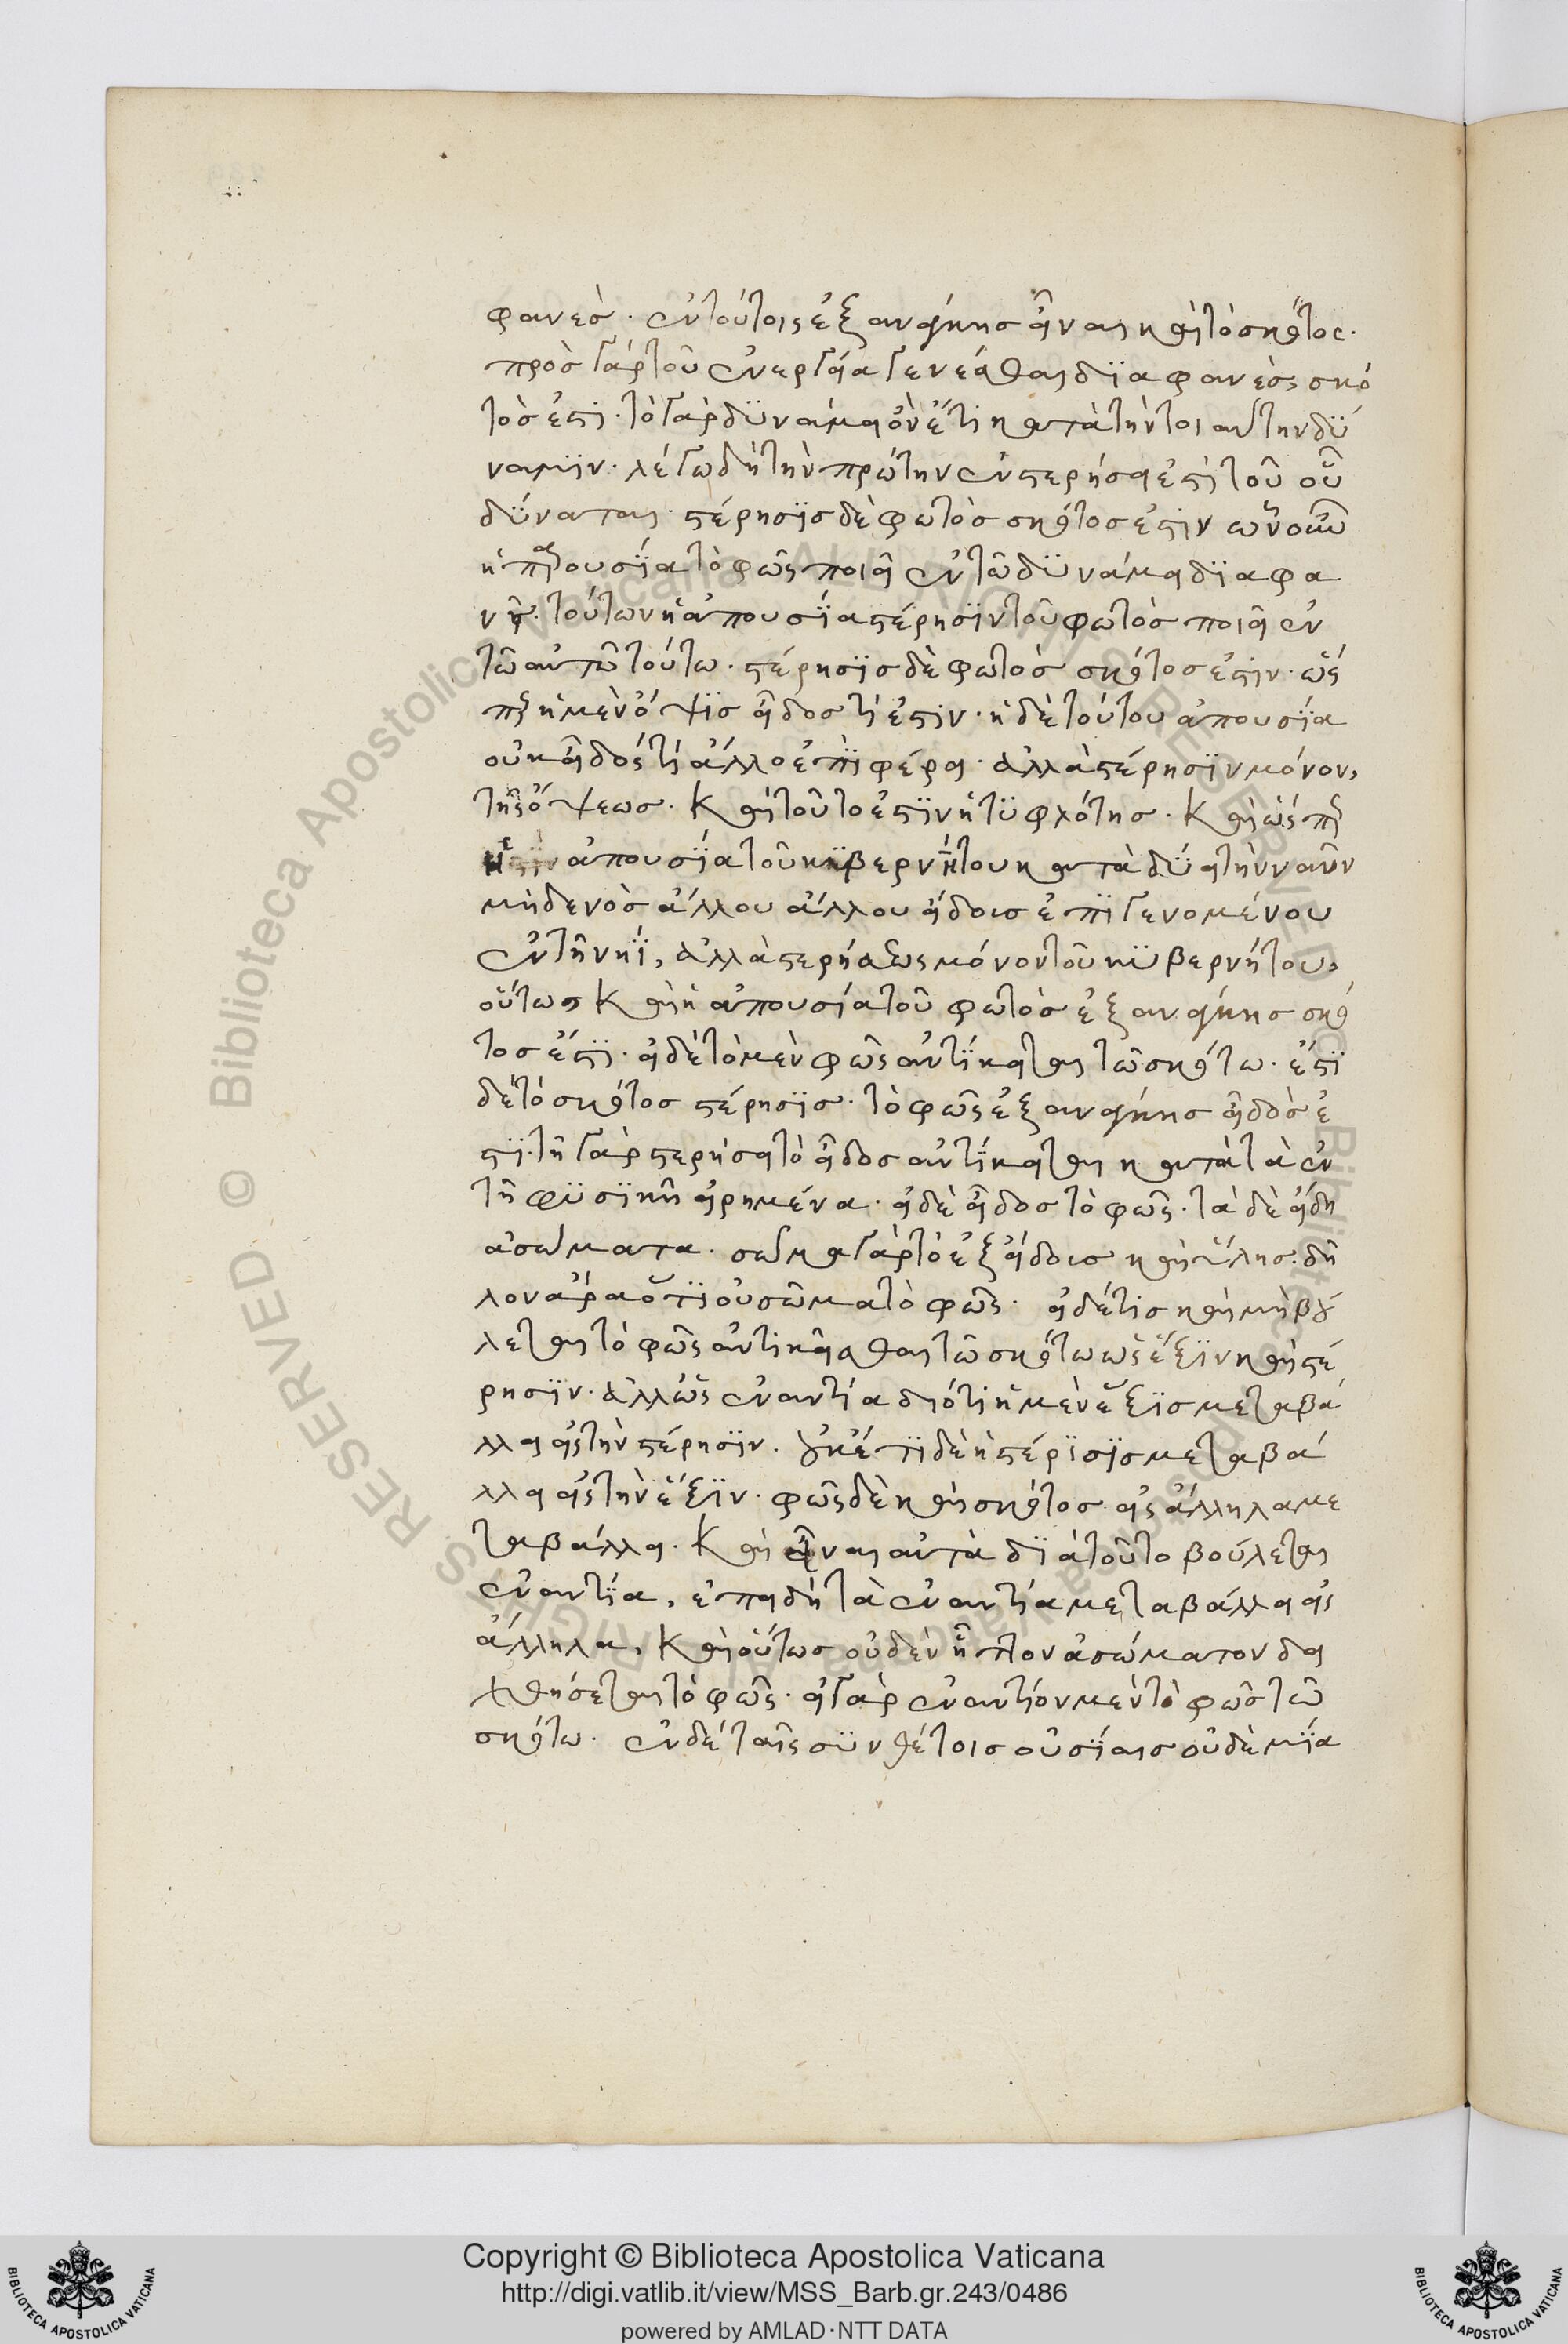 φανὲς. ἐν τούτοις ἐξ ἀνάγκης εἶναι καὶ τὸ σκότος.
πρὸς γὰρ τοῦ ἐνεργείᾳ γενέσθαι διαφανὲς, σκό
τος ἐστί. τὸ γὰρ δυνάμει ὂν ἔτι κατὰ τὴν τοιαύτην δύ
ναμιν. λέγω δὴ τὴν πρώτην ἐν στερήσει ἐστὶ τοῦ οὗ
δύναται. στέρησις δὲ φωτὸς σκότος ἐστὶν ὧν οὖν
ἡ παρουσία τὸ φῶς ποιεῖ ἐν τῷ δυνάμει διαφα
νεῖ. τούτων ἡ ἀπουσία στέρησιν τοῦ φωτὸς ποιεῖ ἐν
τῷ αὐτῷ τούτῳ. στέρησις δὲ φωτὸς σκότος ἐστίν. ὥς
περ ἡ μὲν ὄψις εἶδος τί ἐστιν. ἡ δὲ τούτου ἀπουσία
οὐκ εἶδός τι ἄλλο ἐπιφέρει. ἀλλὰ στέρησιν μόνον,
τῆς ὄψεως. Καὶ τοῦτο ἐστὶν ἡ τυφλότης. Καὶ ὥςπερ
ἡ ἀπουσία τοῦ κυβερνήτου κατὰ δύει τὴν ναῦν
μηδενὸς ἄλλου ἄλλου εἴδους ἐπιγενομένου
ἐν τῇ νηῒ, ἀλλὰ στερήσεως μόνον τοῦ κυβερνήτου,
οὕτως Καὶ ἡ ἀπουσία τοῦ φωτὸς ἐξ ἀνάγκης σκό
τος ἐστί. εἰ δὲ τὸ μὲν φῶς ἀντίκειται τῷ σκότῳ. ἔστι
δὲ τὸ σκότος στέρησις. τὸ φῶς ἐξ ἀνάγκης εἶδός ἐ
στι. τῇ γὰρ στερήσει τὸ εἶδος ἀντίκειται κατὰ τὰ ἐν
τῇ φυσικῇ εἰρημένα. εἰ δὲ εἶδος τὸ φῶς. τὰ δὲ εἴδη
ἀσώματα. σῶμα γὰρ τὸ ἐξ εἴδους καὶ ὕλης. δῆ
λον ἄρα ὅτι οὐ σῶμα τὸ φῶς. εἰ δέ τις καὶ μὴ βού
λεται τὸ φῶς ἀντικεῖσθαι τῷ σκότῳ ὡς ἕξιν καὶ στέ
ρησιν. ἀλλ' ὡς ἐναντία διότι ἡ μὲν ἕξις μεταβά
λλει εἰς τὴν στέρησιν. οὐκέτι δὲ ἡ στέρισις μεταβά
λλει εἰς τὴν ἕξιν. φῶς δὲ καὶ σκότος εἰς ἄλληλα με
ταβάλλει. Καὶ εἶναι αὐτὰ διὰ τοῦτο βούλεται
ἐναντία, ἐπειδὴ τὰ ἐναντία μεταβάλλει εἰς
ἄλληλα, Καὶ οὕτως οὐδὲν ἧττον ἀσώματον δει
χθήσεται τὸ φῶς. εἰ γὰρ ἐναντίον μὲν τὸ φῶς τῷ
σκότῳ. ἐν δὲ ταῖς συνθέτοις οὐσίαις οὐδὲ μία
Copyright © Biblioteca Apostolica Vaticana
http://digi.vatlib.it/view/MSS_Barb.gr.243/0486
powered by AMLAD·NTT DATA